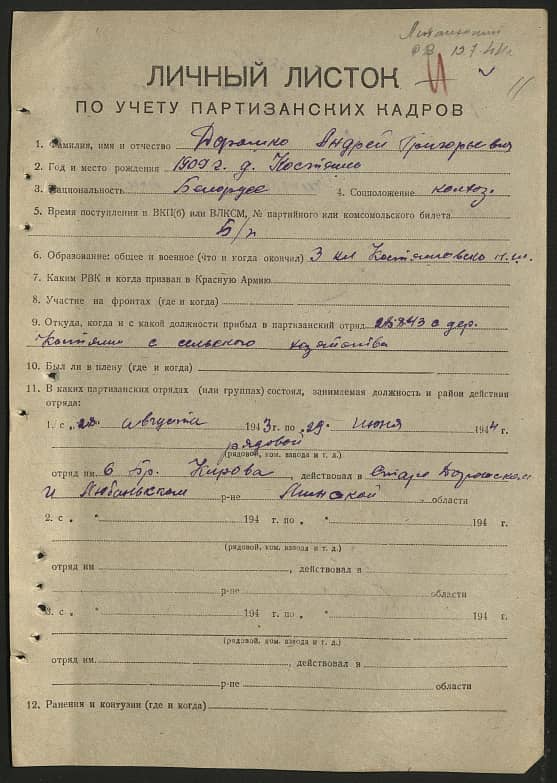 12 7 44 г.
11
ЛИЧНЫЙ ЛИСТОК
ПО УЧЕТУ ПАРТИЗАНСКИХ КАДРОВ
1. Фамилия, имя и отчество Дорошко Андрей Григорьевич
2. Год и место рождения 1909 г. д. Костяшо
3. Национальность Белорус 4. Соцположение колхоз.
5. Время поступления в ВКП(б) или ВЛКСМ, № партийного или комсомольского билета
Б/п
6. Образование: общее и военное (что и когда окончил) 3 кл
7. Каким РВК и когда призван в Красную Армию
8. Участие на фронтах (где и когда)
9. Откуда, когда и с какой должности прибыл в партизанский отряд с дер.
с сельского хозяйства
10. Был ли в плену (где и когда)
11. В каких партизанских отрядах (или группах) состоял, занимаемая должность и район действия
отряда:
1. с „28 августа 1943 г. по „29 июня 1944 г.
рядовой
(рядовой, ком. взвода и т. д.)
отряд им. 6 бр. Кирова, действовал в Старо Дорожском
и Любаньском р-не Минской области
2. с „ " 194 г. по „ " 194 г.
(рядовой, ком. взвода и т. д.)
отряд им. , действовал в
р-не области
3. с „ " 194 г. по „ " 194 г.
(рядовой, ком. взвода и т. д.)
отряд им. , действовал в
р-не области
12. Ранения и контузии (где и когда)